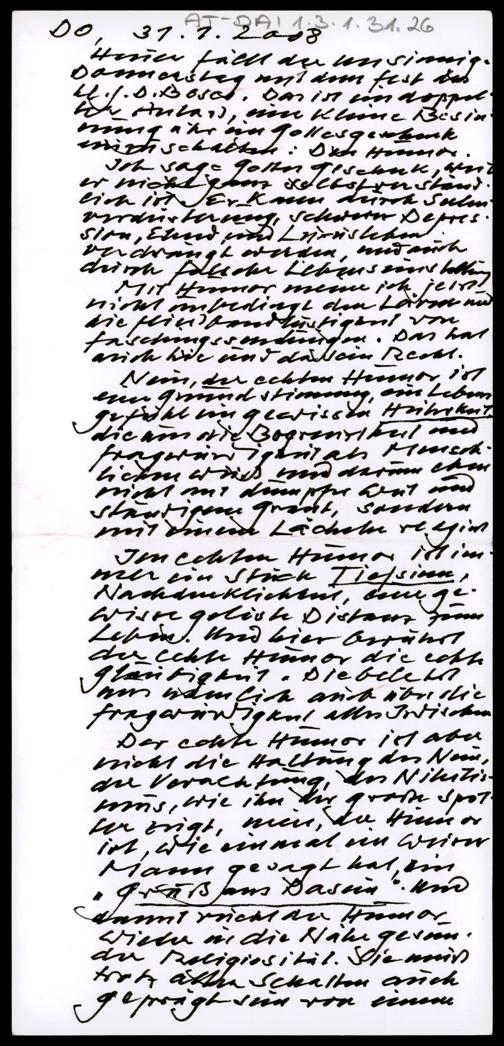 AT-DA! 1.3.1.31.26
DO, 31.1.2008
Heuer fällt der unsinnige
Donnerstag mit dem Fest des
Hl. J. D. Bosco. Das ist ein doppel-
ter Anlass, eine kleine Besin-
nung über ein Gottesgeschenk
einzuschalten: Den Humor.
Ich sage Gottes Geschenk, weil
er nicht ganz selbstverständ-
lich ist. Er kann durch Seelen-
verdüsterung, schwere Depres-
sion, Elend und
verdrängt werden, und auch
durch falsche Lebenseinstellung
Mit Humor meine ich jetzt
nicht unbedingt den Lärm und
die von
Faschingssendungen. Das hat
auch hie und da sein Recht.
Nein, der echte Humor ist
eine Grundstimmung, ein Lebens
gefühl im gewissen Heiterkeit
die um die Begrenztheit und
Fragwürdigkeit als Mensch-
lichen weiß und darum eben
nicht mit dumpfer Wut und
ständigem Grant, sondern
mit einem Lächeln reagiert
Im echten Humor ist im-
mer ein Stück Tiefsinn,
Nachdenklichkeit, eine ge-
wisse gelöste Distanz zum
Leben. Und hier berührt
der echte Humor die echte
Gläubigkeit. Die belehrt
uns nämlich auch über die
Fragwürdigkeit alles Irdischen
Der echte Humor ist aber
nicht die Haltung des Nein,
der Verachtung, des Nihilis-
mus, wie ihn der große Spöt-
ter zeigt, nein, der Humor
ist, wie einmal ein weiser
Mann gesagt hat, ein
"Gruß ans Dasein". Und
damit rückt der Humor
wieder in die Nähe gesun-
der Religiosität. Sie muß
trotz allen Schatten auch
geprägt sein von einem